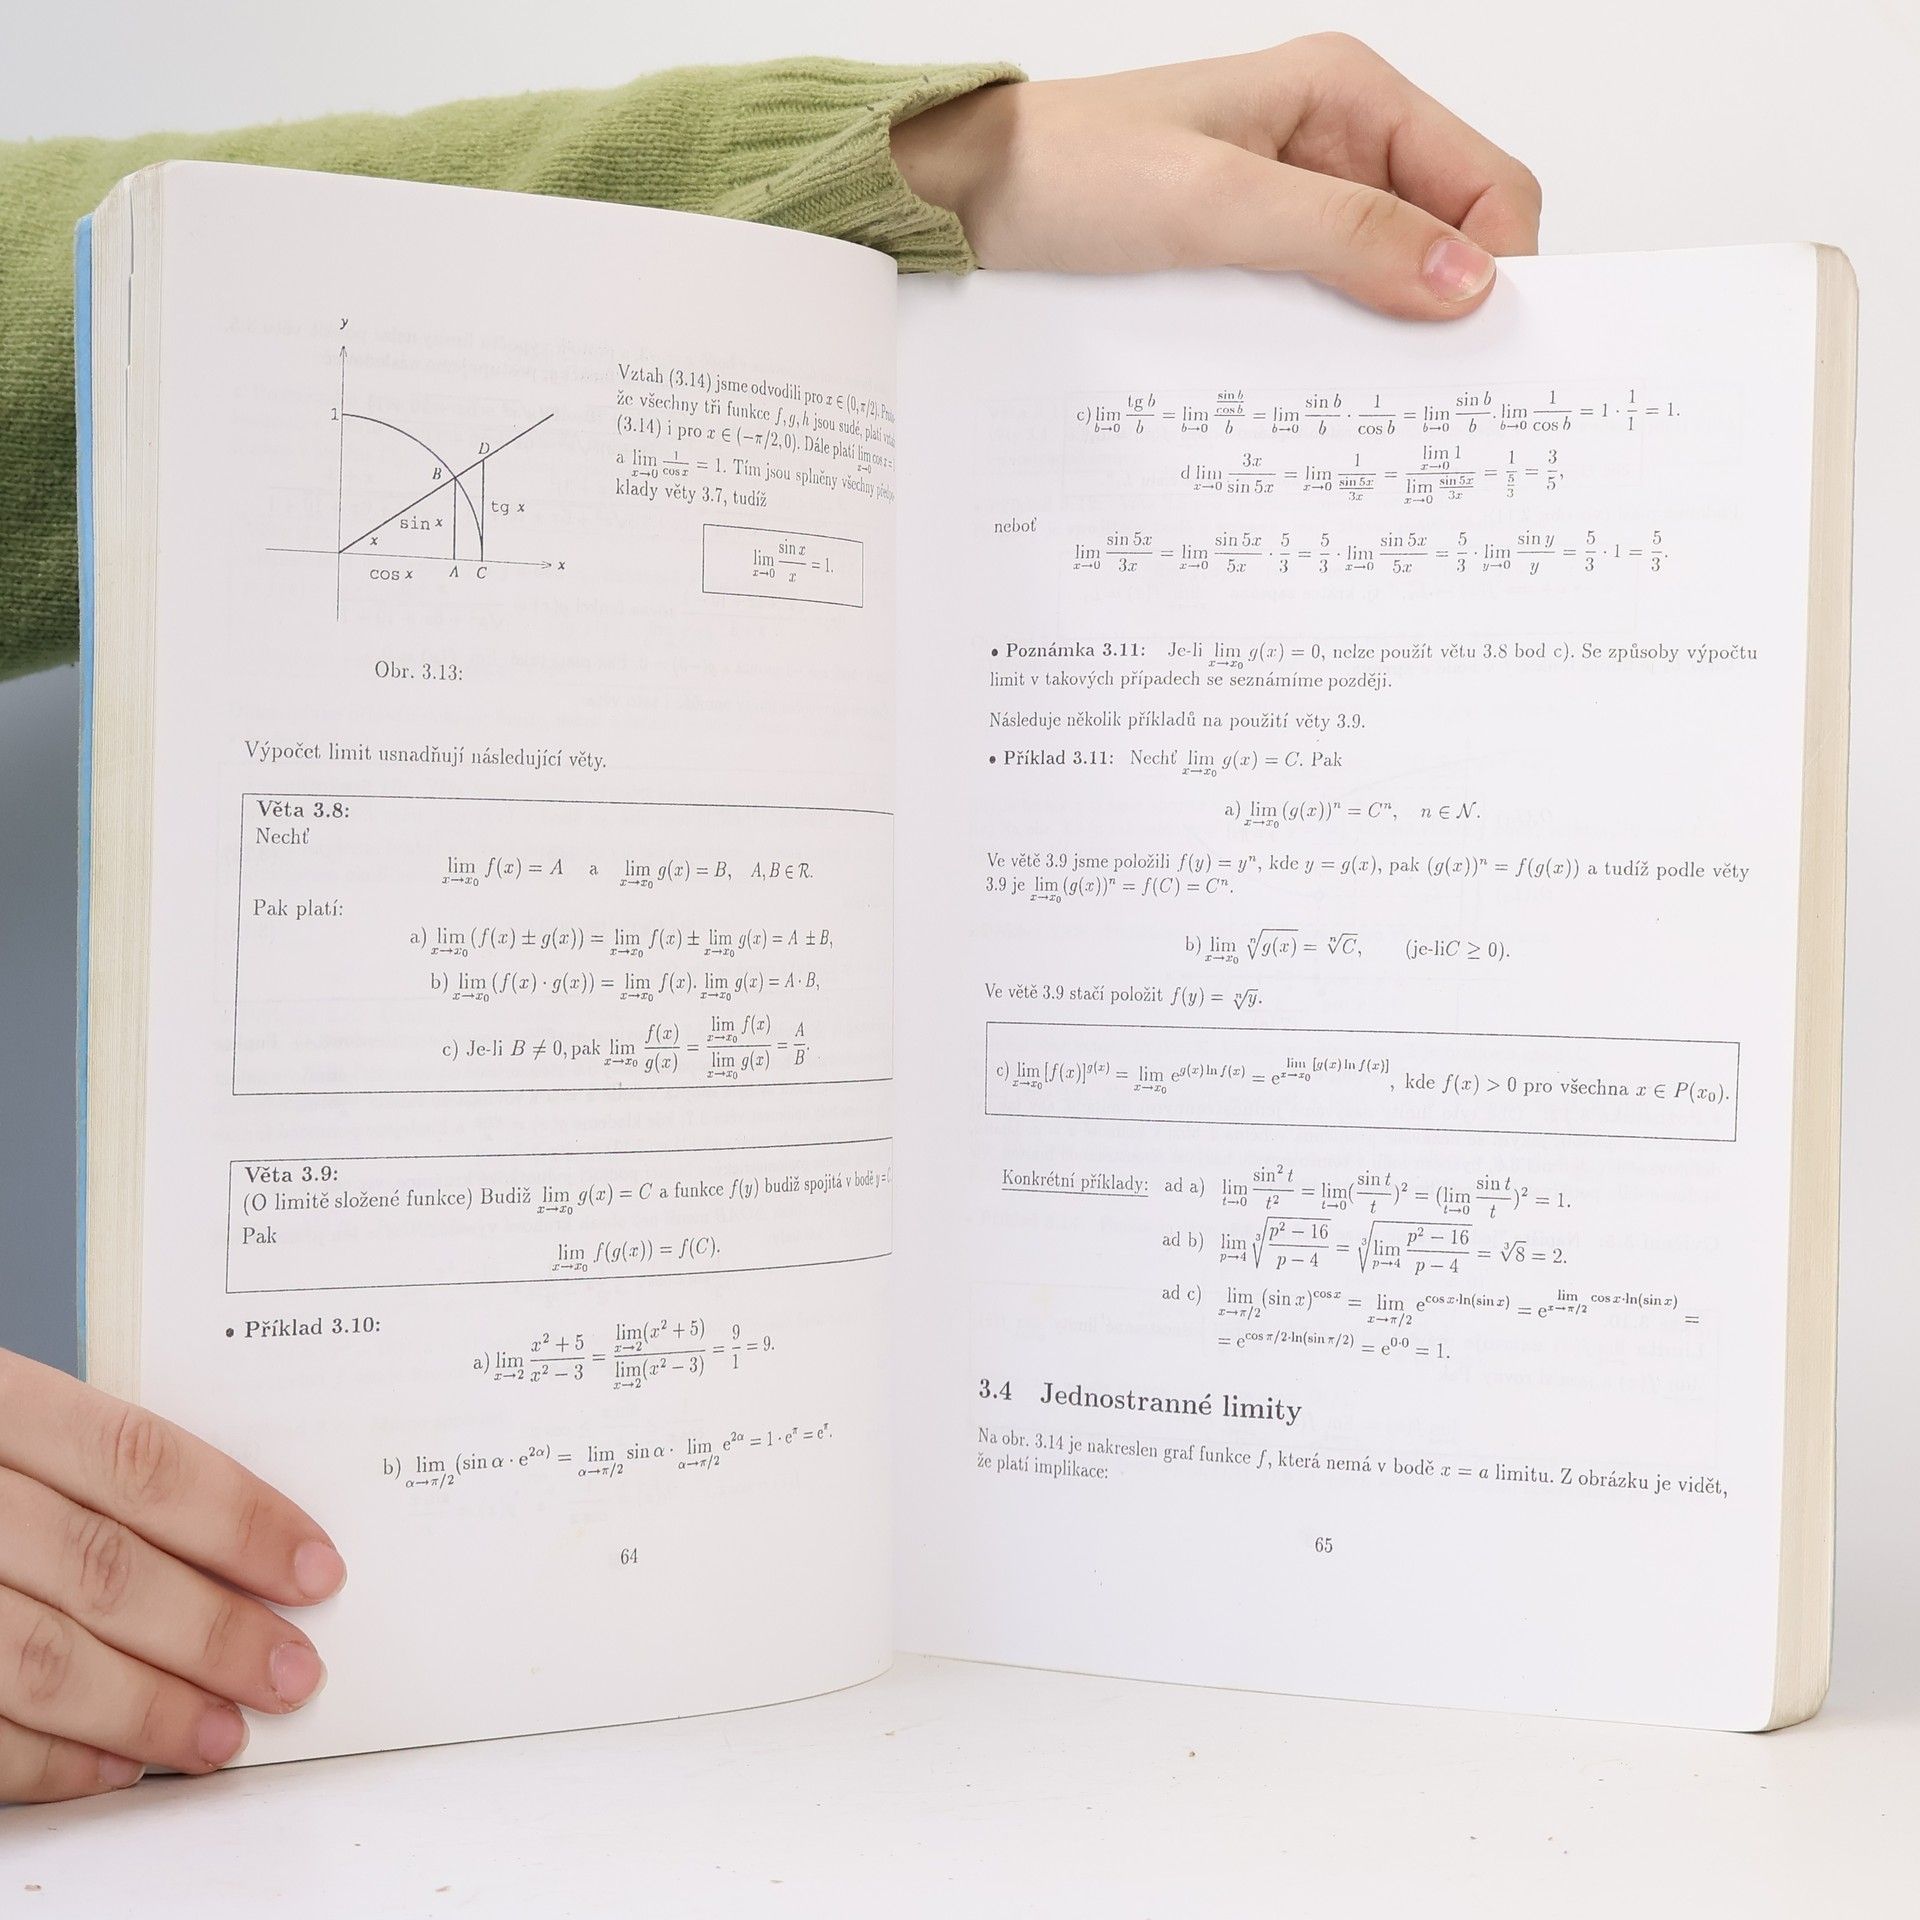 y
1
D
B
tg x
sin x
x
cos x
A C
x
Obr. 3.13:
Vztah (3.14) jsme odvodili pro x ∈ (0, π/2).
že všechny tři funkce f, g, h jsou sudé, platí
(3.14) i pro x ∈ (−π/2, 0). Dále platí lim_{x→0} cos x =
a lim_{x→0} 1/cos x = 1. Tím jsou splněny všechny
klady věty 3.7, tudíž
lim_{x→0} sin x / x = 1.
Výpočet limit usnadňují následující věty.
Věta 3.8:
Nechť
lim_{x→x₀} f(x) = A a lim_{x→x₀} g(x) = B, A, B ∈ R.
Pak platí:
a) lim_{x→x₀} (f(x) ± g(x)) = lim_{x→x₀} f(x) ± lim_{x→x₀} g(x) = A ± B,
b) lim_{x→x₀} (f(x) · g(x)) = lim_{x→x₀} f(x). lim_{x→x₀} g(x) = A · B,
c) Je-li B ≠ 0, pak lim_{x→x₀} f(x)/g(x) = lim_{x→x₀} f(x) / lim_{x→x₀} g(x) = A/B.
Věta 3.9:
(O limitě složené funkce) Budiž lim_{x→x₀} g(x) = C a funkce f(y) budiž spojitá v bodě y = C.
Pak
lim_{x→x₀} f(g(x)) = f(C).
• Příklad 3.10:
a) lim_{x→2} (x² + 5)/(x² − 3) = lim_{x→2}(x² + 5) / lim_{x→2}(x² − 3) = 9/1 = 9.
b) lim_{α→π/2} (sin α · e^{2α}) = lim_{α→π/2} sin α · lim_{α→π/2} e^{2α} = 1 · e^π = e^π.
64
c) lim_{b→0} tg b / b = lim_{b→0} (sin b / cos b) / b = lim_{b→0} sin b / b · 1 / cos b = lim_{b→0} sin b / b . lim_{b→0} 1 / cos b = 1 · 1/1 = 1.
d lim_{x→0} 3x / sin 5x = lim_{x→0} 1 / (sin 5x / 3x) = lim_{x→0} 1 / lim_{x→0} (sin 5x / 3x) = 1 / (5/3) = 3/5,
neboť
lim_{x→0} sin 5x / 3x = lim_{x→0} sin 5x / 5x · 5/3 = 5/3 · lim_{x→0} sin 5x / 5x = 5/3 · lim_{y→0} sin y / y = 5/3 · 1 = 5/3.
• Poznámka 3.11: Je-li lim_{x→x₀} g(x) = 0, nelze použít větu 3.8 bod c). Se způsoby výpočtu
limit v takových případech se seznámíme později.
Následuje několik příkladů na použití věty 3.9.
• Příklad 3.11: Nechť lim_{x→x₀} g(x) = C. Pak
a) lim_{x→x₀} (g(x))ⁿ = Cⁿ, n ∈ N.
Ve větě 3.9 jsme položili f(y) = yⁿ, kde y = g(x), pak (g(x))ⁿ = f(g(x)) a tudíž podle věty
3.9 je lim_{x→x₀} (g(x))ⁿ = f(C) = Cⁿ.
b) lim_{x→x₀} ⁿ√g(x) = ⁿ√C, (je-liC ≥ 0).
Ve větě 3.9 stačí položit f(y) = ⁿ√y.
c) lim_{x→x₀} [f(x)]^{g(x)} = lim_{x→x₀} e^{g(x) ln f(x)} = e^{lim_{x→x₀} [g(x) ln f(x)]}, kde f(x) > 0 pro všechna x ∈ P(x₀).
Konkrétní příklady: ad a) lim_{t→0} sin² t / t² = lim_{t→0} (sin t / t)² = (lim_{t→0} sin t / t)² = 1.
ad b) lim_{p→4} ³√((p² − 16)/(p − 4)) = ³√(lim_{p→4} (p² − 16)/(p − 4)) = ³√8 = 2.
ad c) lim_{x→π/2} (sin x)^{cos x} = lim_{x→π/2} e^{cos x·ln(sin x)} = e^{lim_{x→π/2} cos x·ln(sin x)} =
= e^{cos π/2·ln(sin π/2)} = e^{0·0} = 1.
3.4 Jednostranné limity
Na obr. 3.14 je nakreslen graf funkce f, která nemá v bodě x = a limitu. Z obrázku je vidět,
že platí implikace:
65